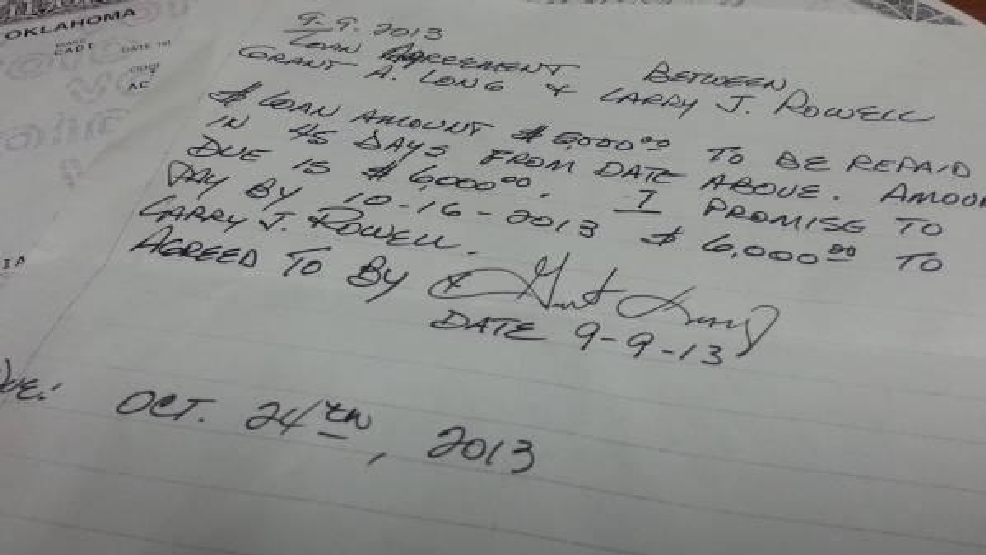 OKLAHOMA
9-9-2013
LOAN AGREEMENT BETWEEN
GRANT A. LONG & LARRY J. ROWELL
$ LOAN AMOUNT $5000.00 TO BE REPAID
IN 45 DAYS FROM DATE ABOVE. AMOUN
DUE IS $6,000.00. I PROMISE TO
PAY BY 10-16-2013 $6,000.00 TO
LARRY J. ROWELL.
AGREED TO BY Grant Long
DATE 9-9-13
Due: OCT. 24th, 2013